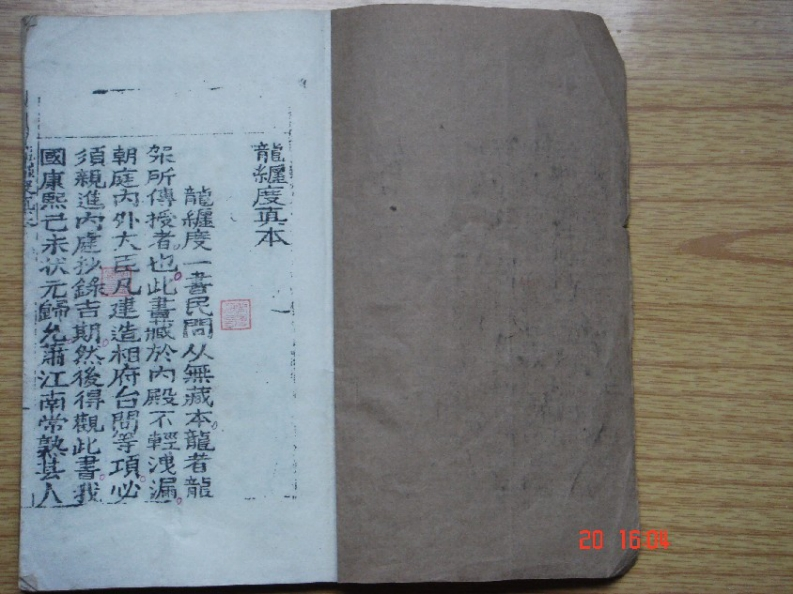 龍纏度真本
龍纏度一書民間从無藏本龍者龍
架所傳授者也此書藏於內殿不輕洩漏
朝庭內外大臣凡建造相府台閣等項必
須親進內庭抄錄吉期然後得觀此書我
國康熙己未狀元歸允蕭江南常熟縣人
20 16:04